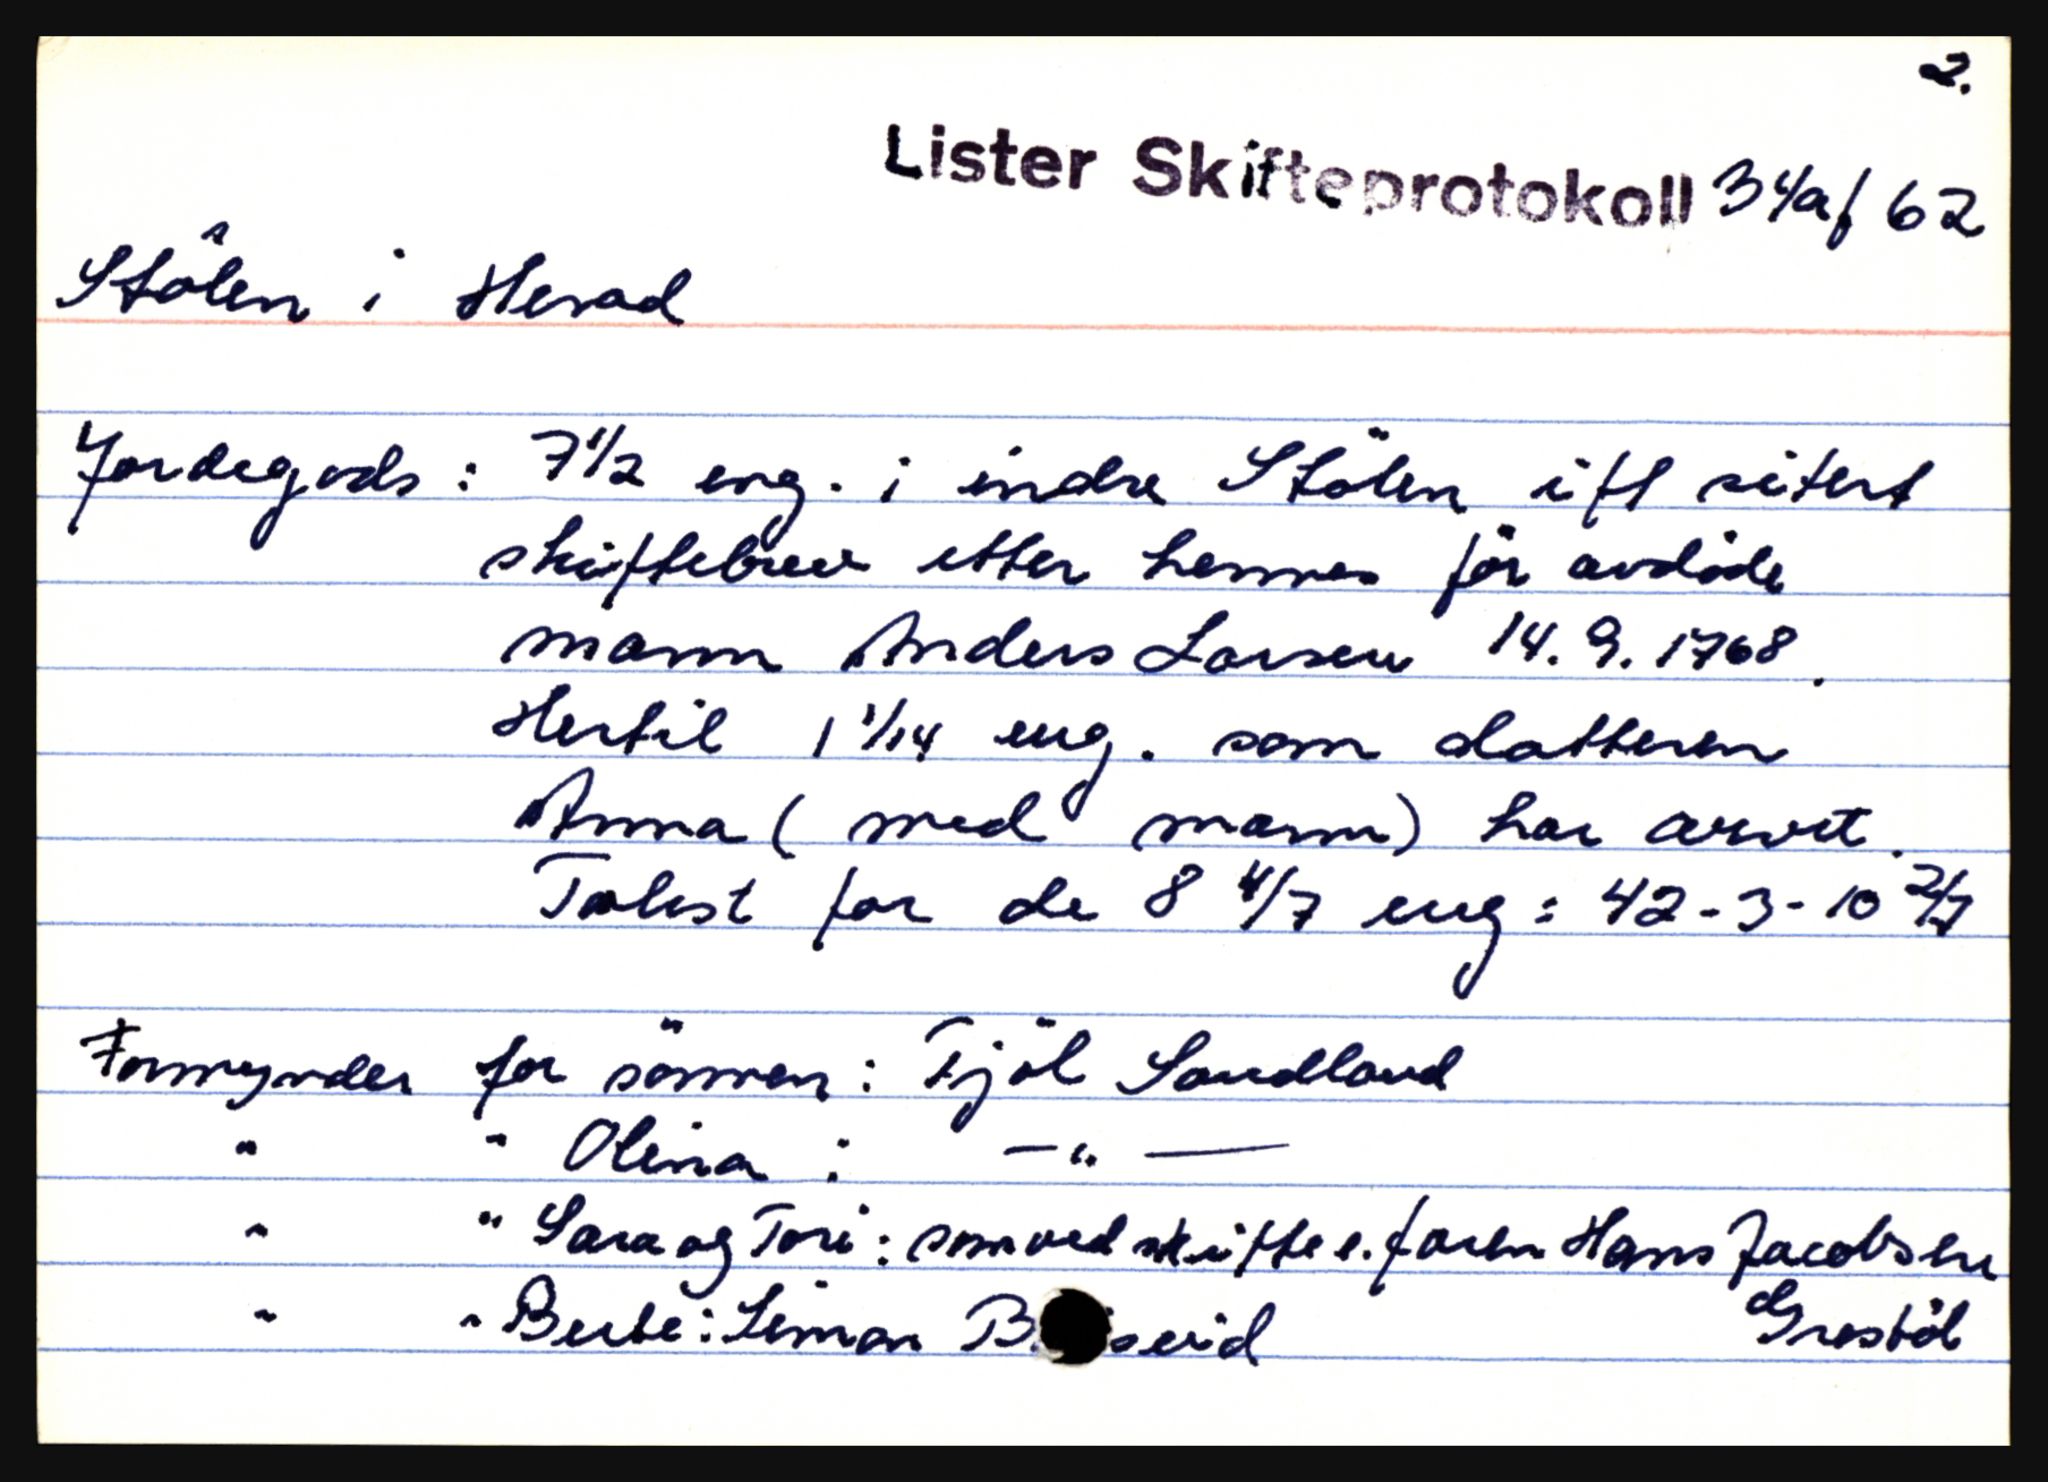 2.
Lister Skifteprotokoll 34a/ 62
Stölen i Herad
Jordegods: 7 1/2 eng. i indre Stölen ifl sitert
skiftebrev etter hennes för avdöde
mann Anders Larsen 14.9.1768.
Hertil 1 1/14 eng. som datteren
Anna (med mann) har arvet.
Tallest for de 8 4/7 eng: 42-3-10 2/7
Formynder for sönnen: Tjöl Sandland
" " Olina: —"—
" " Sara og Tori: som ved skifte e. faren Hans Jacobsen
Grestöl
" " Berte: Simon